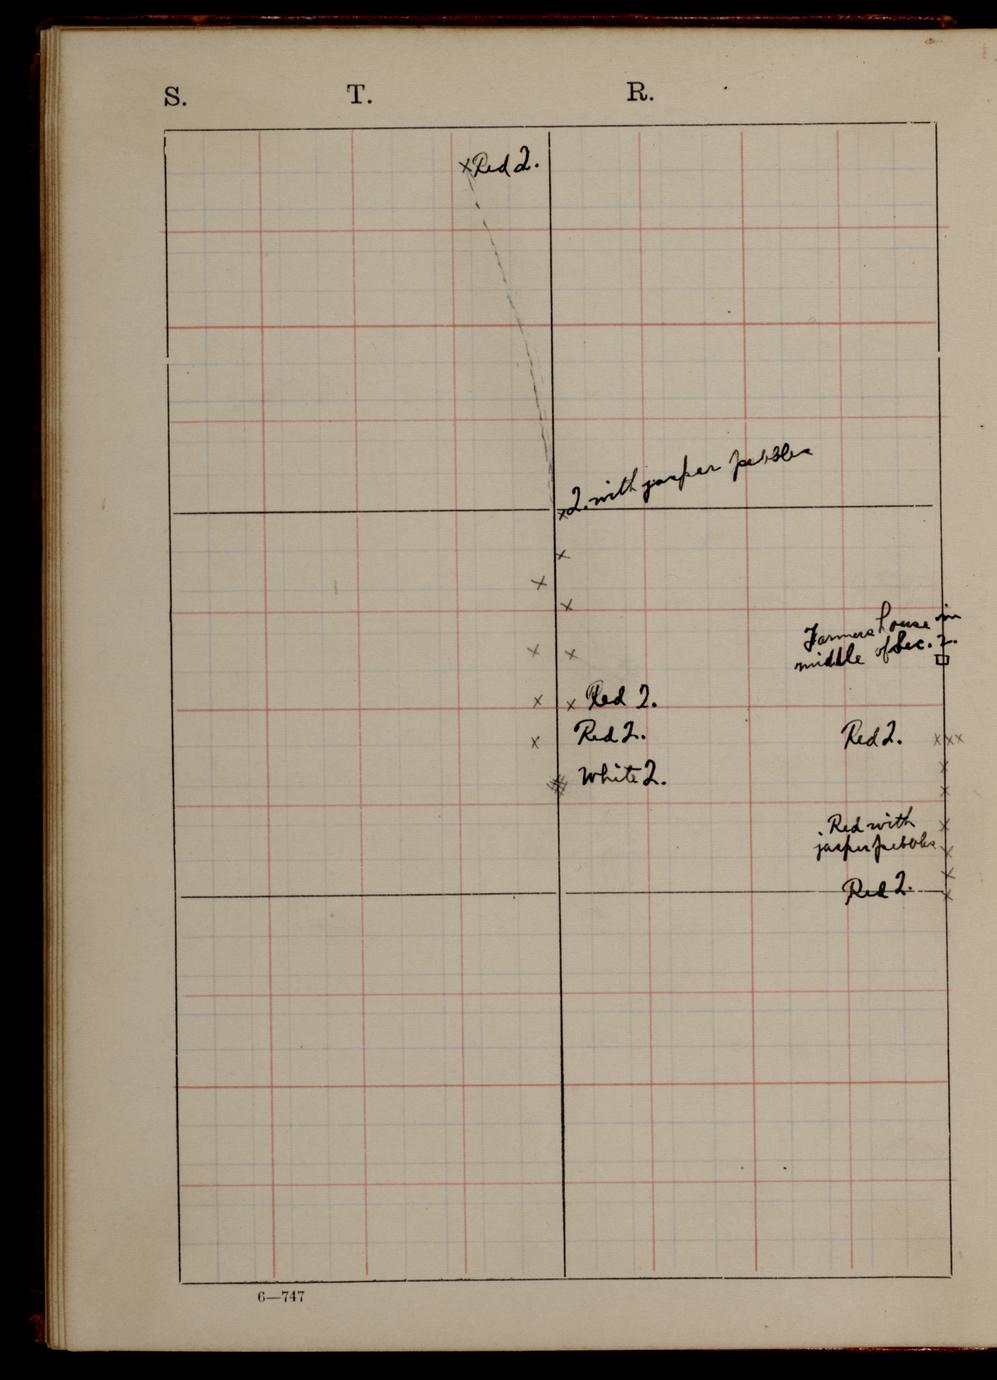 S. T. R.
x Red 2.
x 2. with jasper pebbles
Farmers house in
middle of Sec. 2.
Red 2.
Red 2.
Red 2.
White 2.
Red with
jasper pebbles
Red 2.
6—747